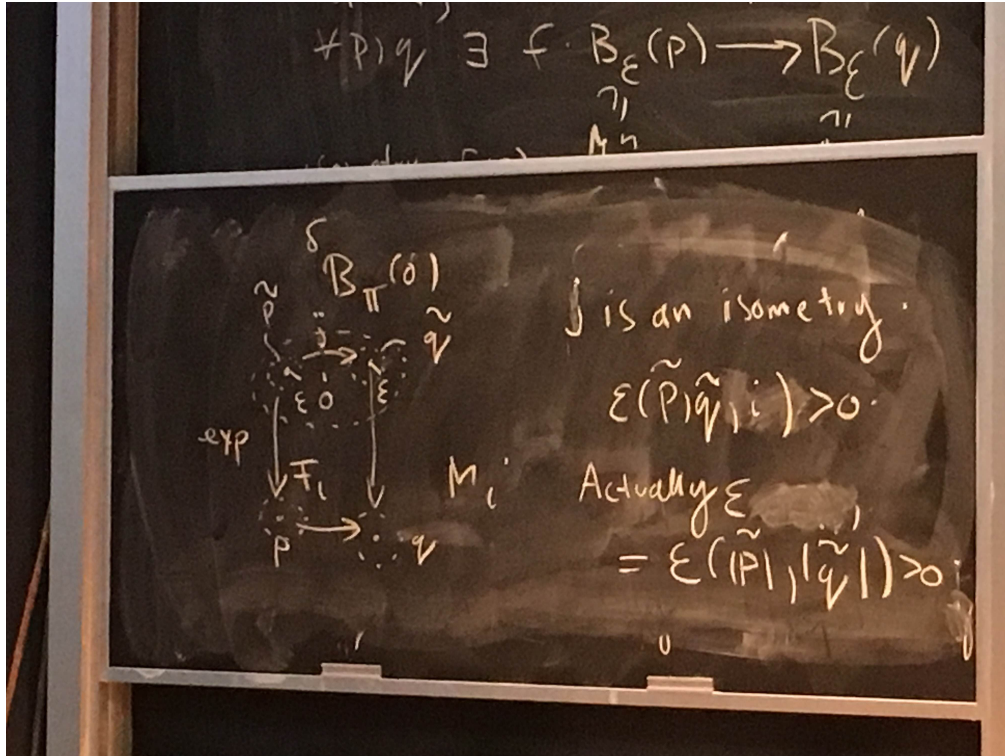 ∀p,q ∃ f. B_ε(p) ⟶ B_ε(q)
δ
B_π(0)
p̃ j q̃
ε 0 ε
exp
F_i M_i
p → q
j is an isometry.
ε(p̃, q̃, i) > 0.
Actually ε
= ε(|p̃|, |q̃|) > 0